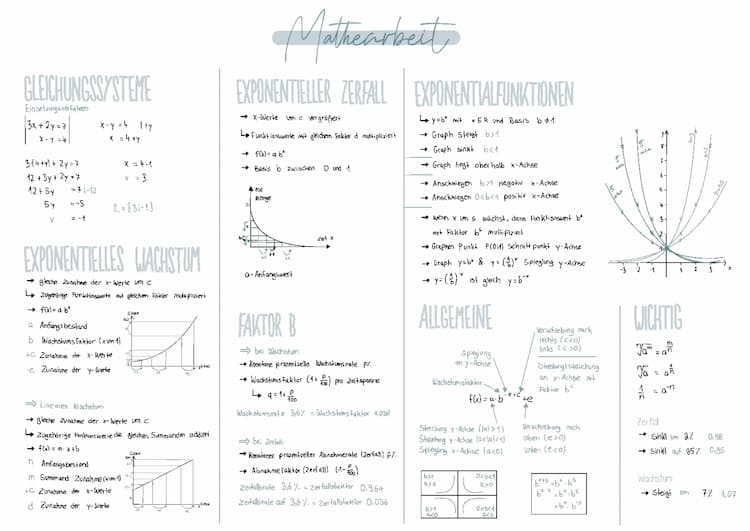 Mathearbeit
GLEICHUNGSSYSTEME
Einsetzungsverfahren
3x + 2y = 7
x - y = 4
x - y = 4 | + y
x = 4 + y
3(4+y) + 2y = 7
12 + 3y + 2y = 7
12 + 5y = 7 | -12
5y = -5
y = -1
x = 4 - 1
x = 3
L = {3|-1}
EXPONENTIELLES WACHSTUM
→ gleiche Zunahme der x-Werte um c
↳ zugehörige Funktionswerte mit gleichen Faktor multipliziert
→ f(x) = a·bˣ
a Anfangsbestand
b Wachstumsfaktor (x um 1)
+c Zunahme der x-Werte
·e Zunahme der y-Werte
⇒ Lineares Wachstum
→ gleiche Zunahme der x-Werte um c
↳ Zugehörige Funktionswerte die gleichen Summanden addiert
→ f(x) = m·x+b
n Anfangsbestand
m Summand Zunahme (x um 1)
+c Zunahme der x-Werte
d Zunahme der y-Werte
EXPONENTIELLER ZERFALL
→ x-Werte um c vergrößert
↳ Funktionswerte mit gleichen Faktor d multipliziert
→ f(x) = a·bˣ
→ Basis b zwischen 0 und 1
Menge
Zeit x
a = Anfangswert
FAKTOR B
⇒ bei Wachstum
→ Konstante prozentuelle Wachstumsrate p%
→ Wachstumsfaktor (1 + p/100) pro Zeitspanne
↳ q = 1 + p/100
Wachstumsrate 3,6% = Wachstumsfaktor 1,036
⇒ bei Zerfall
→ Konstanter prozentueller Abnahmerate (Zerfall) p%
→ Abnahmefaktor (Zerfall) (1 - p/100)
Zerfallsrate 3,6% = Zerfallsfaktor 0,964
Zerfallsrate auf 3,6% = Zerfallsfaktor 0,036
EXPONENTIALFUNKTIONEN
↳ y = bˣ mit x ∈ R und Basis b ≠ 1
→ Graph steigt b>1
→ Graph sinkt b<1
→ Graph liegt oberhalb x-Achse
→ Anschmiegen b>1 negativ x-Achse
→ Anschmiegen 0<b<1 positiv x-Achse
→ wenn x um s wächst, dann Funktionswert bˣ
mit Faktor bˢ multipliziert
→ Graphen Punkt P(0|1) Schnittpunkt y-Achse
→ Graph y=bˣ & y=(1/b)ˣ Spieglung y-Achse
→ y=(1/b)ˣ ist gleich y=b⁻ˣ
-3 -2 -1 1 2 3 x
y
ALLGEMEINE
Spieglung
an y-Achse
Verschiebung nach
rechts (c<0)
links (c>0)
Wachstumsfaktor
Streckung/Stauchung
an y-Achse mit
Faktor bᶜ
f(x) = a·b⁻ˣ⁺ᶜ + e
Streckung y-Achse (|a|>1)
Stauchung y-Achse (0<|a|<1)
Spieglung x-Achse (a<0)
Verschiebung nach
oben (e>0)
unten (e<0)
b>1
a>0
0<b<1
a>0
b>1
a<0
0<b<1
a<0
bˣ⁺ˢ = bˣ·bˢ
WICHTIG
1/aⁿ = a⁻ⁿ
Zerfall
→ sinkt um 2% 0,98
→ sinkt auf 95% 0,95
Wachstum
→ steigt um 7% 1,07